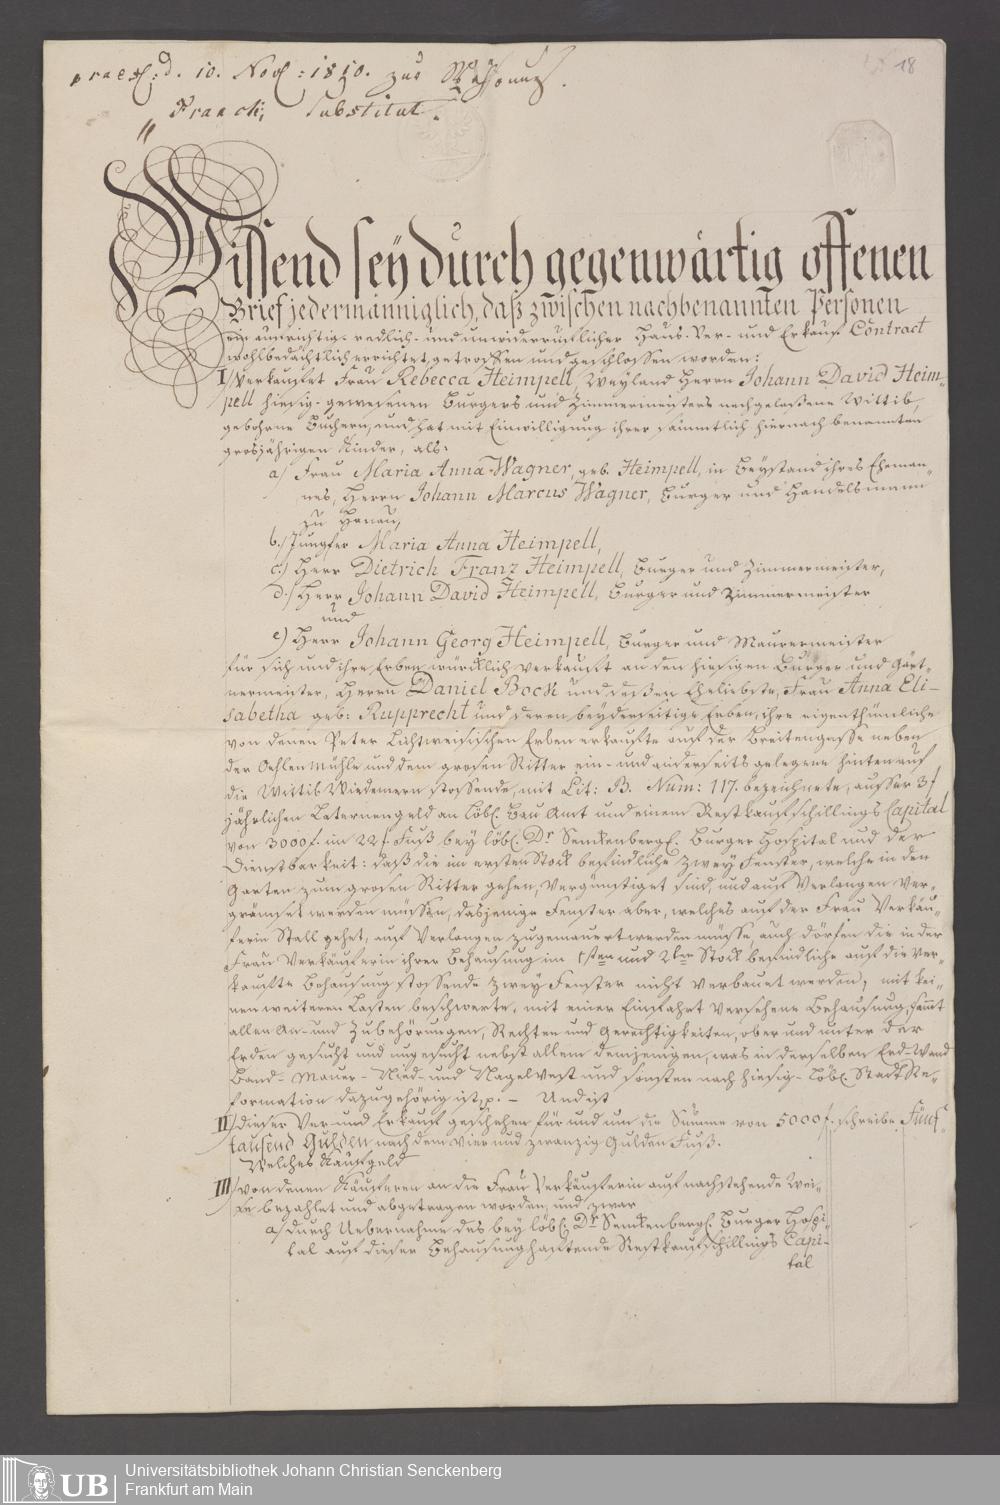 praes: d. 10. Nov: 1810. zur Wahrung.
Franck, Substitut.
18
Wissend seÿ durch gegenwärtig offenen
Brief jedermänniglich, daß zwischen nachbenannten Personen
ein aufrichtig- redlich- und unwiderruflicher Haus- Ver- und Erkauf Contract
wohlbedächtlich errichtet, getroffen und geschlossen worden:
I./ Verkaufet Frau Rebecca Heimpell, Weyland Herrn Johann David Heim-
pell hiesig- gewesenen Burgers und Zimmermeisters nachgelaßene Wittib,
gebohrne Buchern, und hat mit Einwilligung ihrer sämmtlich hiernach benannten
grosjährigen Kinder, als:
a/ Frau Maria Anna Wagner, geb. Heimpell, in Beystand ihres Eheman-
nes, Herrn Johann Marcus Wagner, Burger und Handelsmann
zu Hanau,
b./ Jungfer Maria Anna Heimpell,
c./ Herr Dietrich Franz Heimpell, Burger und Zimmermeister,
d./ Herr Johann David Heimpell, Burger und Zimmermeister
und
e) Herr Johann Georg Heimpell, Burger und Maurermeister
für sich und ihre Erben würcklich verkauft an den hiesigen Burger und Gärt-
nermeister, Herrn Daniel Bock und deßen Eheliebste, Frau Anna Eli-
sabetha geb: Rupprecht und deren beyderseitige Erben, ihre eigenthümliche
von denen Peter Lichtweisischen Erben erkaufte auf der Breitengasse neben
der Oehlen Mühle und dem grosen Ritter ein- und anderseits gelegene hinten auf
die Wittib Wiedemern stossende, mit Lit: B. Num: 117. bezeichnete, ausser 3f
jährlichen Laternengeld an löbl. Bau Amt und einem Restkaufschillings Capital
von 3000f. im 22f. Fuß bey löbl. Dr Senckenbergs. Burger Hospital und der
Dienstbarkeit: daß die im ersten Stock befindliche zwey Fenster, welche in den
Garten zum grosen Ritter gehen, vergünstiget sind, und auf Verlangen ver-
grämset werden müssen, dasjenige Fenster aber, welches auf der Frau Verkäu-
ferin Stall gehet, auf Verlangen zugemauert werden müsse, auch dörfen die in der
Frau Verkäuferin ihrer Behausung im 1sten und 2ten Stock befindliche auf die ver-
kaufte Behausung stossende zwey Fenster nicht verbauet werden, mit kei-
nen weiteren Lasten beschwerte, mit einer Einfahrt versehene Behausung, samt
allen An- und Zubehörungen, Rechten und Gerechtigkeiten, ober und unter der
Erden gesucht und ungesucht nebst allem demjenigen, was in derselben Erd- Wand
Band- Mauer- Nied- und Nagelvest und sonsten nach hiesig- löbl. Stadt Re-
formation dazugehörig ist, p. – Und ist
II/ dieser Ver- und Erkauf geschehen für und um die Summe von 5000f. schreibe Fünf-
tausend Gulden nach dem vier und zwanzig Gulden Fuß.
Welches Kaufgeld
III/ von denen Käuferen an die Frau Verkäuferin auf nachstehende Wei-
se bezahlet und abgetragen worden, und zwar
a/ durch Uebernahme des bey löbl. Dr Senckenbergs. Burger Hospi-
tal auf dieser Behausung haftende Restkaufschillings Capi-
tal
UB Universitätsbibliothek Johann Christian Senckenberg
Frankfurt am Main